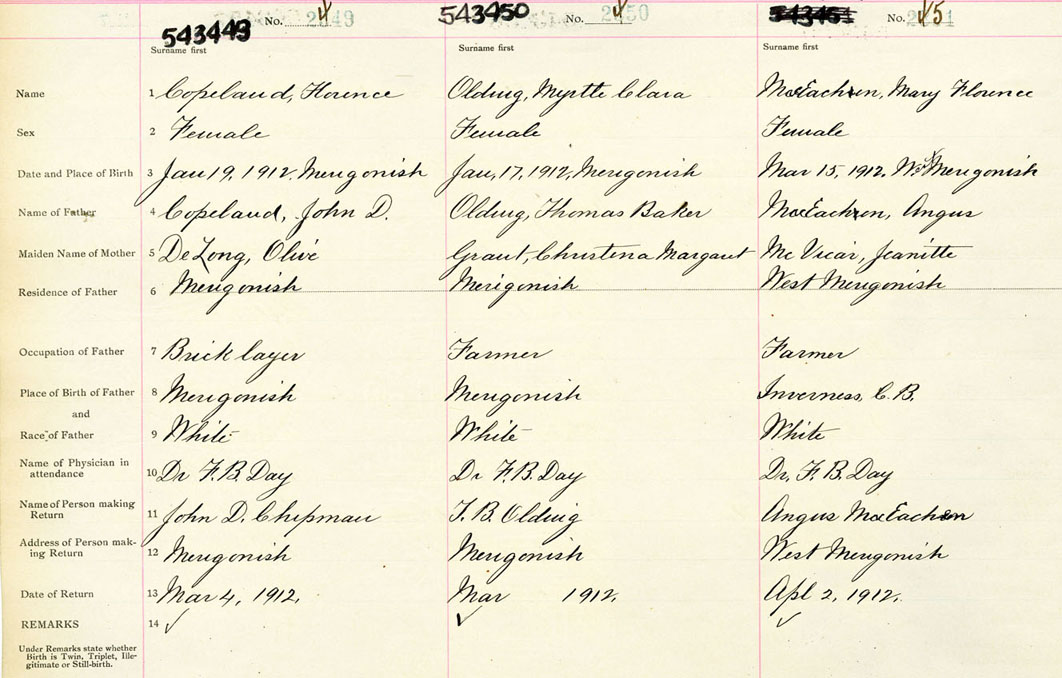 543449 No. 4 2849 543450 No. 4 2850 543451 No. 45
Surname first Surname first Surname first
Name 1 Copeland, Florence Olding, Myrtle Clara MacEachren, Mary Florence
Sex 2 Female Female Female
Date and Place of Birth 3 Jan 19, 1912, Merigonish Jan, 17, 1912, Merigonish Mar 15, 1912, W. Merigonish
Name of Father 4 Copeland, John D. Olding, Thomas Baker MacEachren, Angus
Maiden Name of Mother 5 DeLong, Olive Grant, Christena Margaret McVicar, Jeanitte
Residence of Father 6 Merigonish Merigonish West Merigonish
Occupation of Father 7 Brick layer Farmer Farmer
Place of Birth of Father 8 Merigonish Merigonish Inverness, C.B.
and
Race of Father 9 White White White
Name of Physician in
attendance 10 Dr F.B. Day Dr F.B. Day Dr. F.B. Day
Name of Person making
Return 11 John D. Chipman T. B. Olding Angus MacEachren
Address of Person mak-
ing Return 12 Merigonish Merigonish West Merigonish
Date of Return 13 Mar 4, 1912, Mar 1912, Apl 2, 1912,
REMARKS 14 ✓ ✓ ✓
Under Remarks state whether
Birth is Twin, Triplet, Ille-
gitimate or Still-birth.